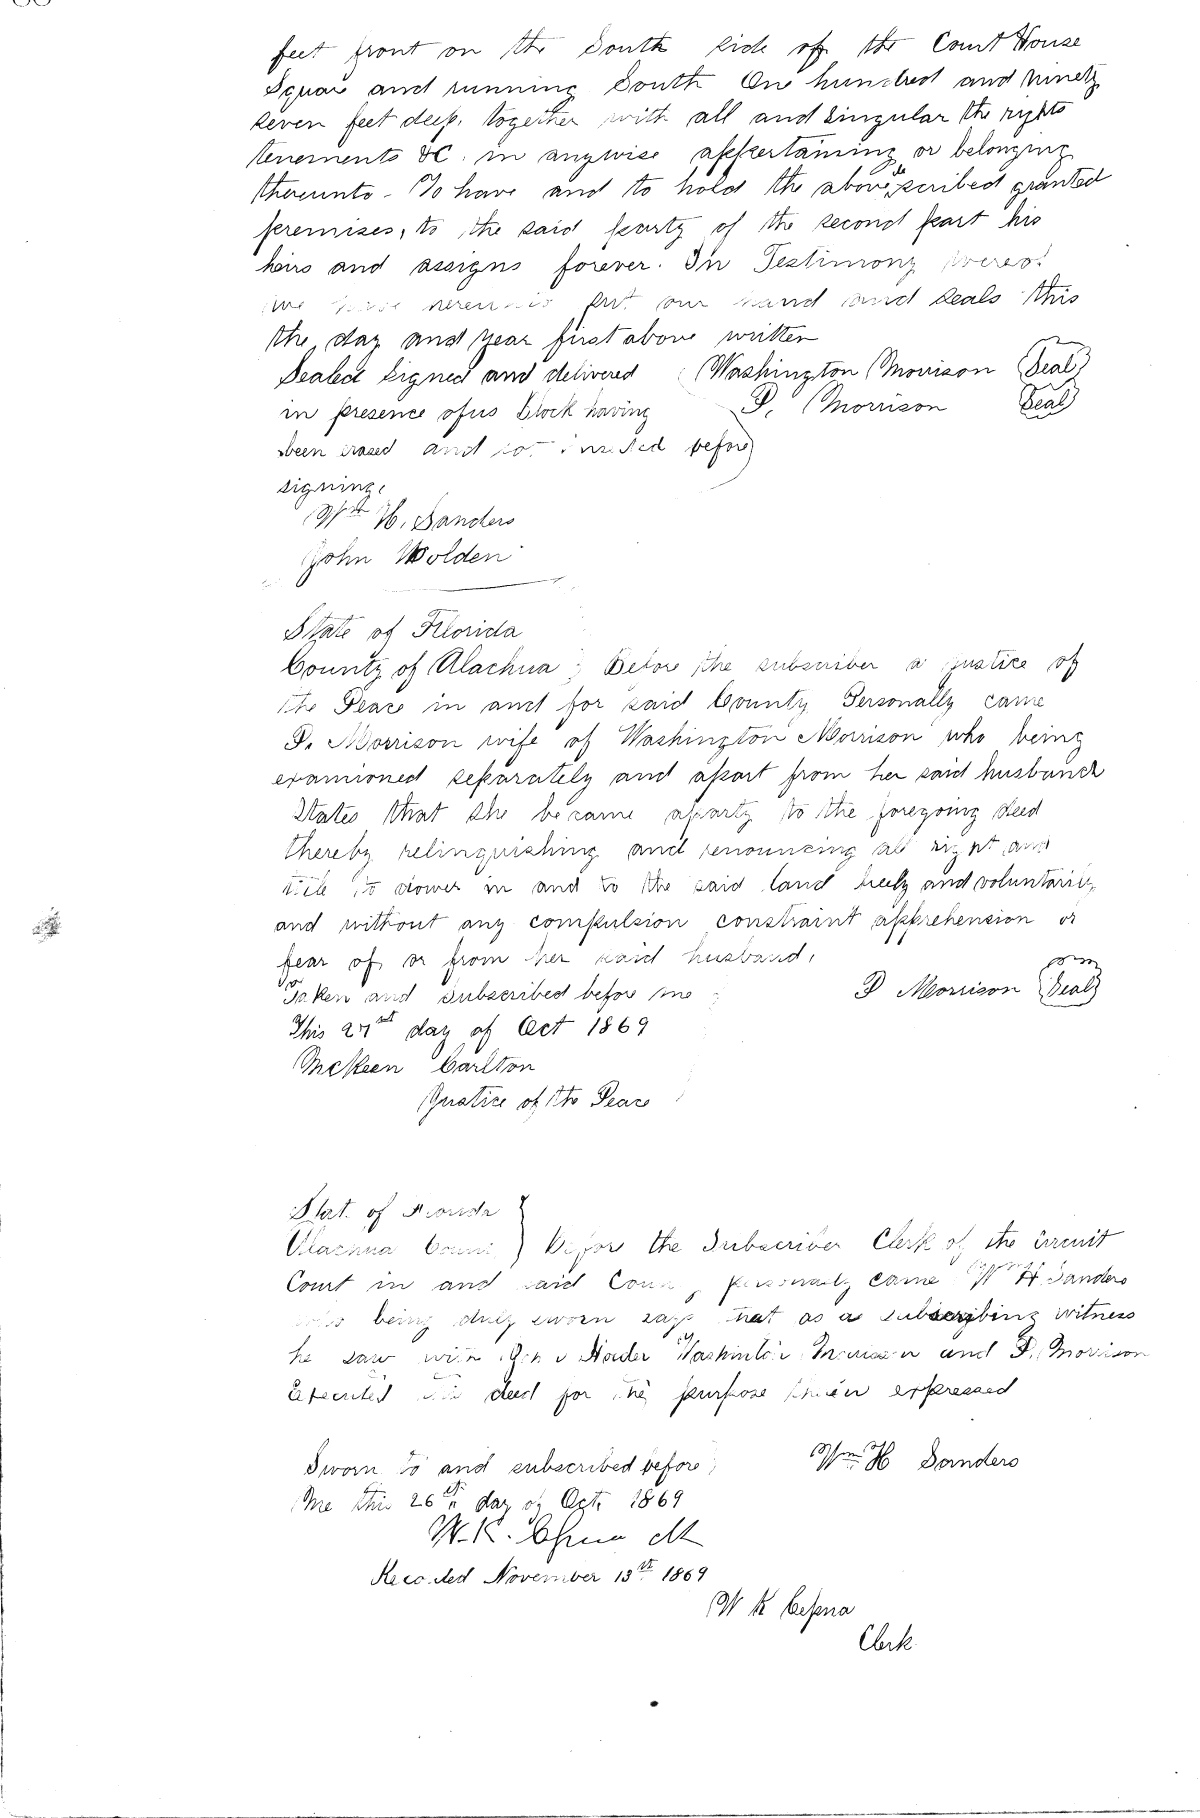 feet front on the South side of the Court House
Square and running South One hundred and ninety
seven feet deep, together with all and singular the rights
tenements &C. in anywise appertaining or belonging
thereunto - To have and to hold the above described granted
premises, to the said party of the second part his
heirs and assigns forever. In Testimony whereof
we have hereunto put our hand and seals this
the day and year first above written
Sealed Signed and delivered Washington Morrison Seal
in presence of us block having P. Morrison Seal
been erased and lot inserted before
signing.
Wm H. Sanders
John Wolden
State of Florida
County of Alachua ; Before the subscriber a justice of
the Peace in and for said County Personally came
P. Morrison wife of Washington Morrison who being
examioned separately and apart from her said husband
States that she became aparty to the foregoing deed
thereby relinquishing and renouncing all right and
title to dower in and to the said land freely and voluntarily
and without any compulsion constraint apprehension or
fear of or from her said husband,
Taken and subscribed before me P Morrison Seal
This 27st day of Oct 1869
McKeen Carlton
Justice of the Peace
Stat. of Florida
Alachua County } Before the Subscriber Clerk of the circuit
Court in and said County personally came Wm H. Sanders
who being duly sworn says that as a subscribing witness
he saw with Washinton Morrison and P. Morrison
Executed this deed for the purpose therein expressed
Sworn to and subscribed before Wm H Sanders
Me this 26th day of Oct. 1869
W. K. Cessna Clk
Recorded November 13th 1869
W K Cessna
Clerk